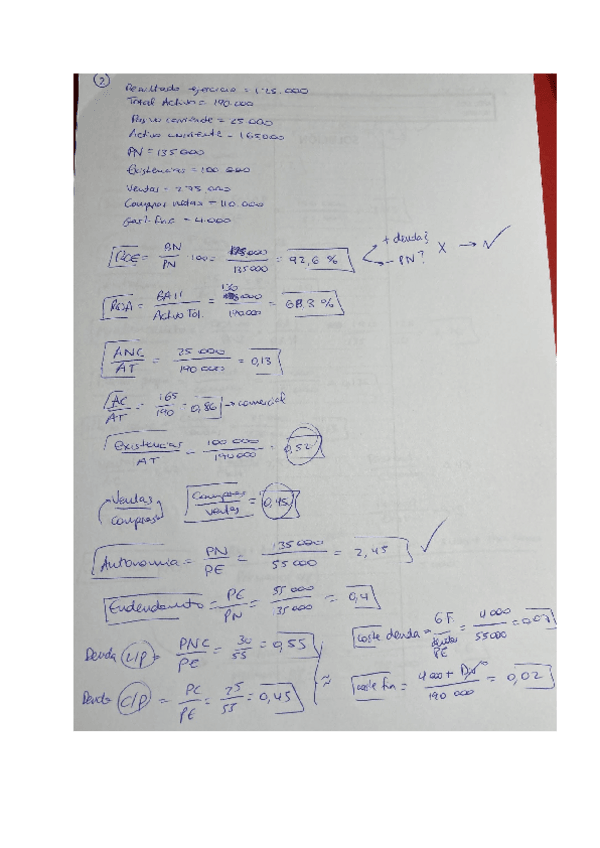 2
Resultado ejercicio = 125.000
Total Activo = 190.000
Pasivo corriente = 25 000
Activo corriente = 165000
PN = 135 000
Existencias = 100.000
Ventas = 275.000
Compras netas = 110.000
Gast. fin = 4.000
ROE = BN / PN · 100 = 125000 / 135000 = 92,6 % + deuda? - PN? X → ✓
ROA = BAII / Activo Tot. = 130 000 / 190.000 = 68,3 %
ANC / AT = 25 000 / 190 000 = 0,13
AC / AT = 165 / 190 = 0,86 → comercial
Existencias / AT = 100 000 / 190 000 = 0,52
Ventas / Compras Compras / Ventas = 0,45
Autonomia = PN / PE = 135 000 / 55 000 = 2,45 ✓
Endeudamiento = PE / PN = 55 000 / 35 000 = 0,4
Deuda L/P = PNC / PE = 30 / 55 = 0,55 coste deuda = GF / deudas PE = 4 000 / 55000 = 0,07
Deuda C/P = PC / PE = 25 / 55 = 0,45 ≈ coste fin = 4 000 + / 190 000 = 0,02